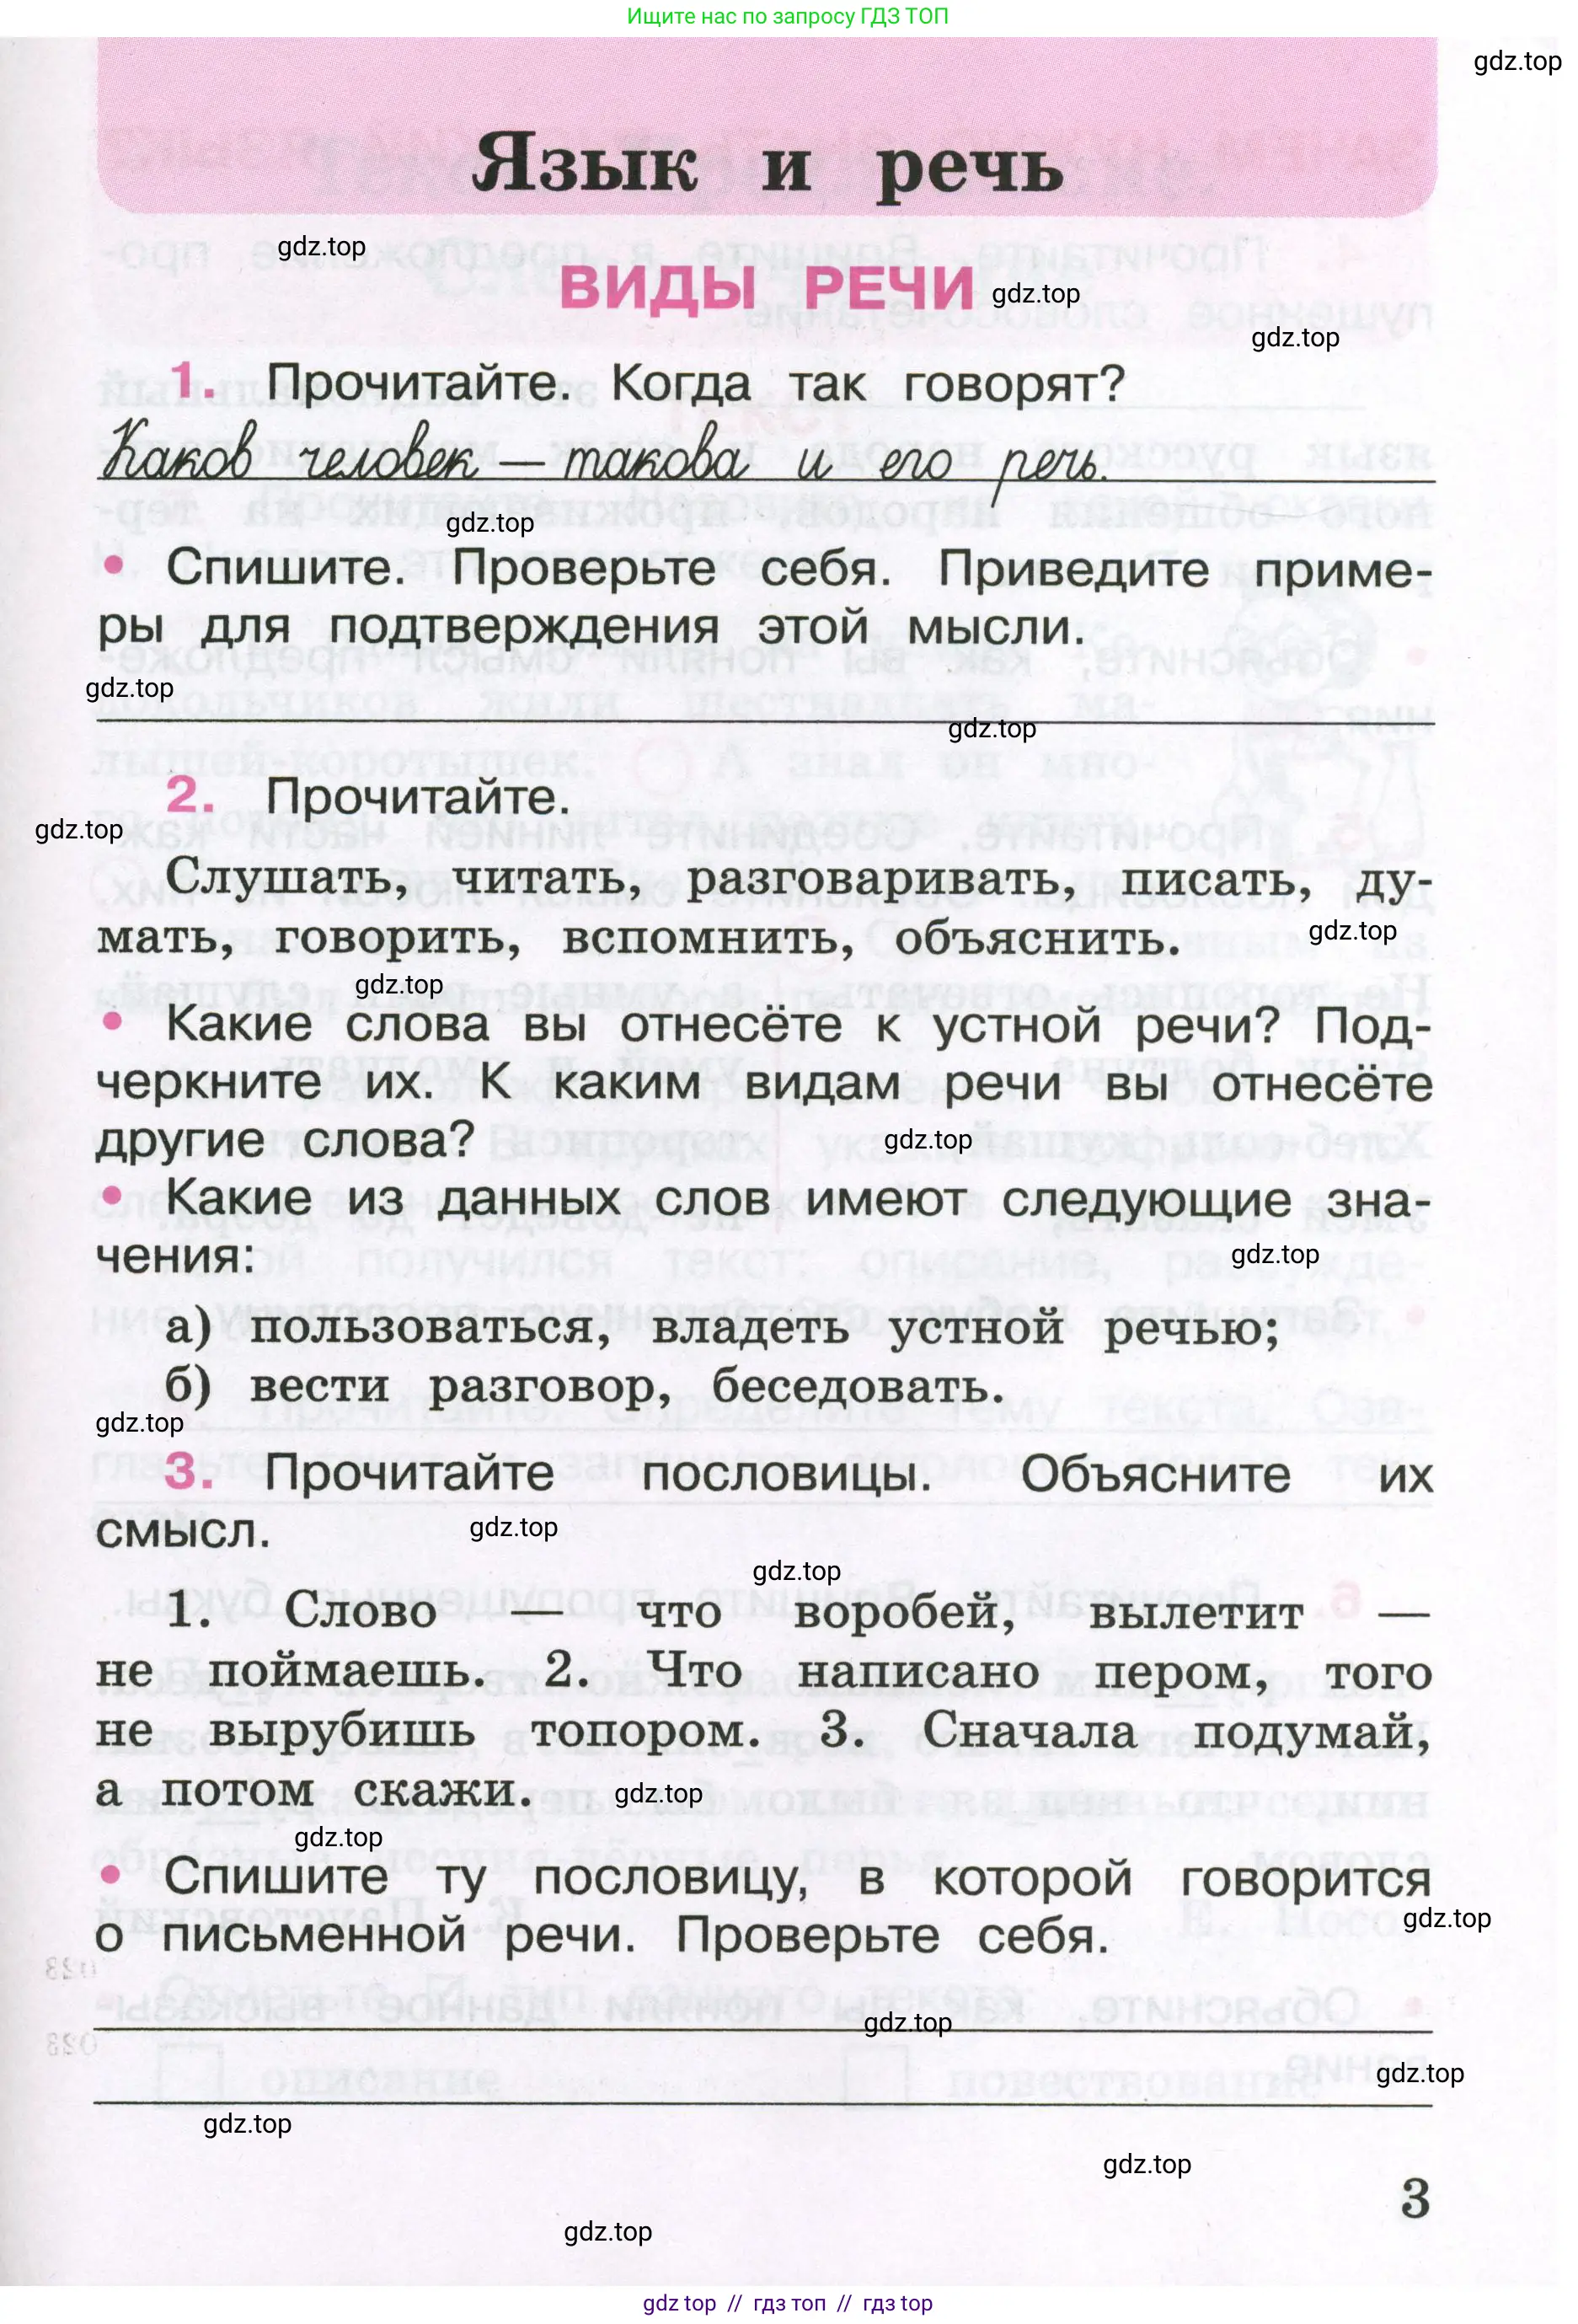 Ищите нас по запросу ГДЗ ТОП
gdz.top
Язык и речь
gdz.top
ВИДЫ РЕЧИ gdz.top
gdz.top
1. Прочитайте. Когда так говорят?
Каков человек — такова и его речь.
gdz.top
• Спишите. Проверьте себя. Приведите приме-
ры для подтверждения этой мысли.
gdz.top
gdz.top
2. Прочитайте.
gdz.top
Слушать, читать, разговаривать, писать, ду-
мать, говорить, вспомнить, объяснить.
gdz.top
gdz.top
• Какие слова вы отнесёте к устной речи? Под-
черкните их. К каким видам речи вы отнесёте
другие слова?
gdz.top
• Какие из данных слов имеют следующие зна-
чения:
gdz.top
а) пользоваться, владеть устной речью;
б) вести разговор, беседовать.
gdz.top
3. Прочитайте пословицы. Объясните их
смысл.
gdz.top
gdz.top
1. Слово — что воробей, вылетит —
не поймаешь. 2. Что написано пером, того
не вырубишь топором. 3. Сначала подумай,
а потом скажи.
gdz.top
gdz.top
• Спишите ту пословицу, в которой говорится
о письменной речи. Проверьте себя.
gdz.top
gdz.top
gdz.top
gdz.top
gdz.top
3
gdz.top
gdz top // гдз топ // гдз top